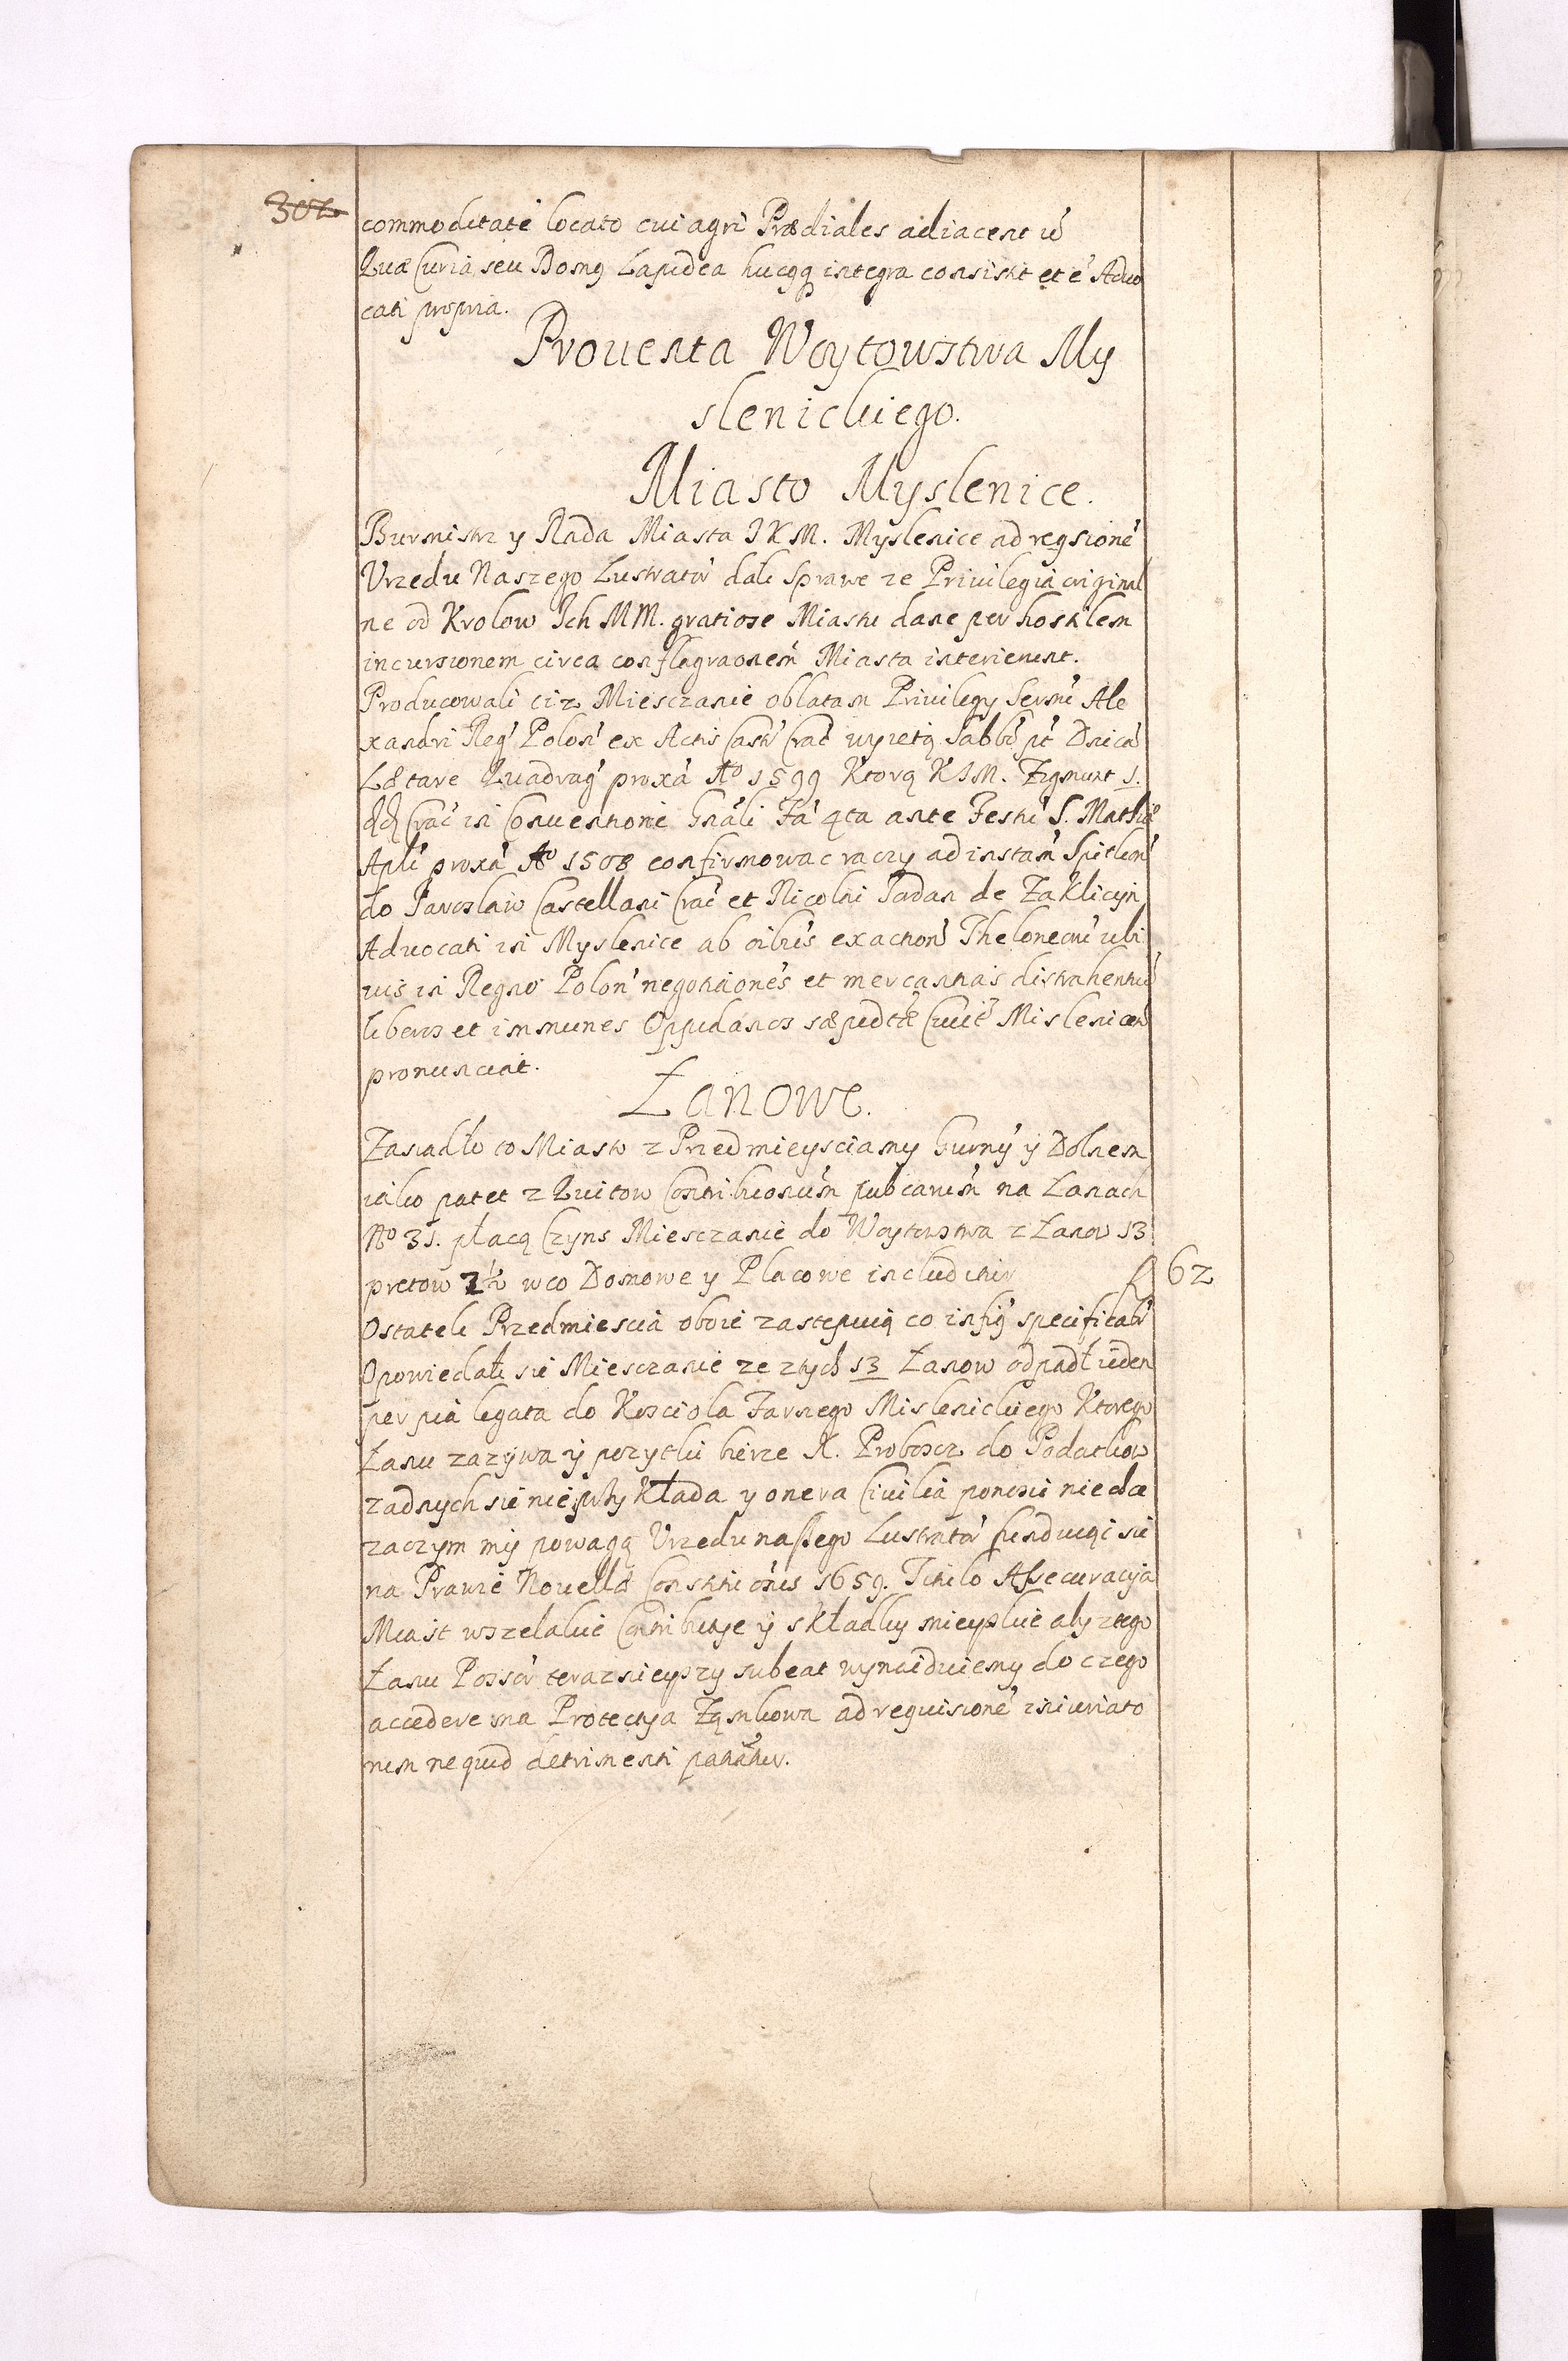 302
commoditate locato cui agri Prædiales adiacent in
Qua Curia seu Domus Lapidea hucqq integra consistit et e Advo
cati propria.
Prouenta Woytowstwa My
slenickiego.
Miasto Myslenice.
Burmistrz y Rada Miasta JKM. Myslenice ad reqsione
Vrzedu Naszego Lustrator dali Sprawe ze Priuilegia original
ne od Krolow Ich MM. gratiose Miastu dane per hostilem
incursionem circa conflagraonem Miasta interierunt.
Producowali ciz Miesczanie oblatam Priuilegy Sermi Ale
xandri Reg Polon ex Actis Castr Crac wyietą Sabbo pt Dnica
Lætare Quadrag proxa Ao 1599 Ktorą KJM. Zigmunt 1.
Crac in Conuentione Gnali Fa 4ta ante Festu S. Mathiæ
Apli proxa Ao 1508 confirmowac raczy ad instam Spitkon
do Jaroslaw Castellani Crac et Nicolai Jordan de Zakliczyn
Advocati in Myslenice ab oibus exaction Theloneoru ubi
uis in Regno Polon negotiiones et mercantias distrahentiu
liberos et immunes Oppidanos sæpedtæ Ciuit Mislenicen
pronunciat.
Łanowe.
Zasiadło to Miasto z Przedmieysciamy Gurny y Dolnem
iako patet z Quitow Contribuonum publicarum na Łanach
No 31. płacą Czyns Miesczanie do Woytowstwa z Łanow 13
pretow 2½ w co Domowe y Placowe includitur fl 62
Ostatek Przedmiescia oboie zastepuią co infrą specificatr
Opowiedali sie Miesczanie ze ztych 13 Łanow odpadł ieden
per pia legata do Kosciola Farnego Mislenickiego Ktorego
Łanu zazywa y pozytki bierze X. Proboscz do Podatkow
zadnych sie nie przykłada y onera Ciuilia ponosic nie chce
zaczym my powagą Vrzedu naszego Lustrator funduiąc sie
na Prawie Nouellæ Constitutionis 1659. Titulo Assecuracyia
Miast wszelakie Contributye y składky mieyskie aby z tego
Łanu Possor teraznieyszy subeat wynaiduiemy do czego
accedere ma Protectya Zamkowa ad requisione iniuriato
rum ne quid detrimenti patiatur.